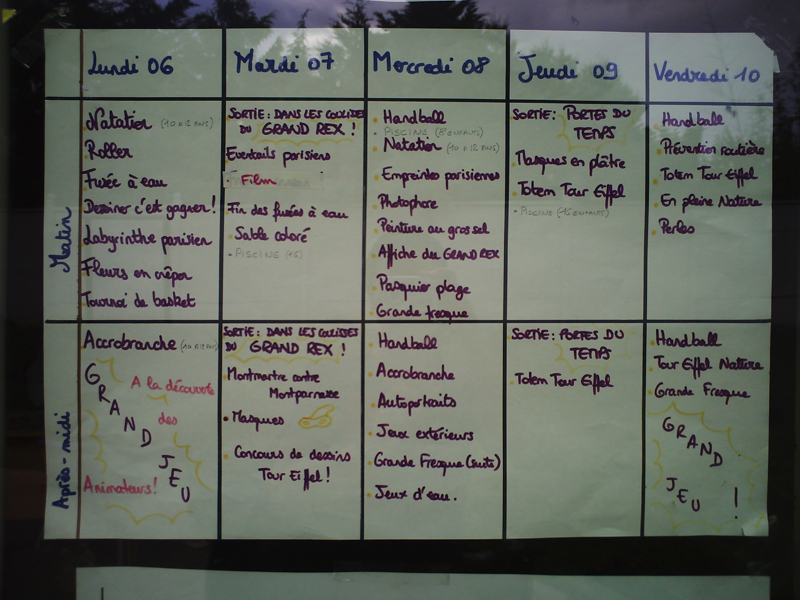 Lundi 06
Mardi 07
Mercredi 08
Jeudi 09
Vendredi 10
Matin
Natation (10 à 12 ans)
Roller
Fusée à eau
Dessiner c'est gagner!
Labyrinthe parisien
Fleurs en crépon
Tournoi de basket
SORTIE: DANS LES COULISSES
DU GRAND REX!
Eventails parisiens
Film
Fin des fusées à eau
Sable coloré
• PISCINE
Handball
• PISCINE (8 ENFANTS)
Natation (10 à 12 ANS)
Empreintes parisiennes
Photophore
Peinture au gros sel
Affiche du GRAND REX
Pasquier plage
Grande fresque
SORTIE: PORTES DU
TEMPS
Masques en plâtre
Totem Tour Eiffel
• PISCINE (15 ENFANTS)
Handball
Prévention routière
Totem Tour Eiffel
En pleine Nature
Perles
Après-midi
Accrobranche
GRAND
JEU
A la découverte
des
Animateurs!
SORTIE: DANS LES COULISSES
DU GRAND REX!
Montmartre contre
Montparnasse
• Masques
• Concours de dessins
Tour Eiffel!
Handball
Accrobranche
Autoportraits
Jeux extérieurs
Grande Fresque (suite)
Jeux d'eau.
SORTIE: PORTES DU
TEMPS
Totem Tour Eiffel
Handball
Tour Eiffel Nature
Grande Fresque
GRAND
JEU !